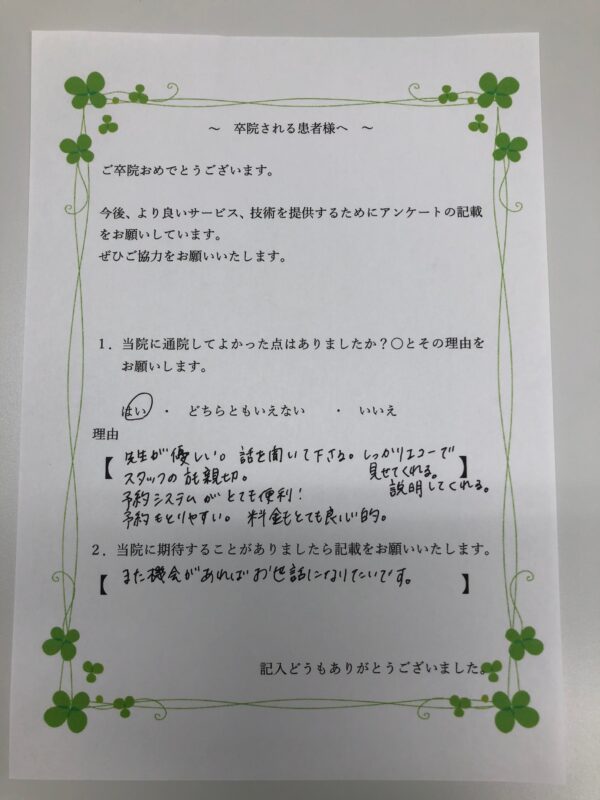 ～ 卒院される患者様へ ～
ご卒院おめでとうございます。
今後、より良いサービス、技術を提供するためにアンケートの記載
をお願いしています。
ぜひご協力をお願いいたします。
1．当院に通院してよかった点はありましたか？〇とその理由を
お願いします。
はい ・ どちらともいえない ・ いいえ
理由
【 先生が優しい。話を聞いて下さる。しっかりエコーで
見せてくれる。 】
説明してくれる。
スタッフの方も親切。
予約システムがとても便利！
予約もとりやすい。料金もとても良心的。
2．当院に期待することがありましたら記載をお願いいたします。
【 また機会があればお世話になりたいです。 】
記入どうもありがとうございました。